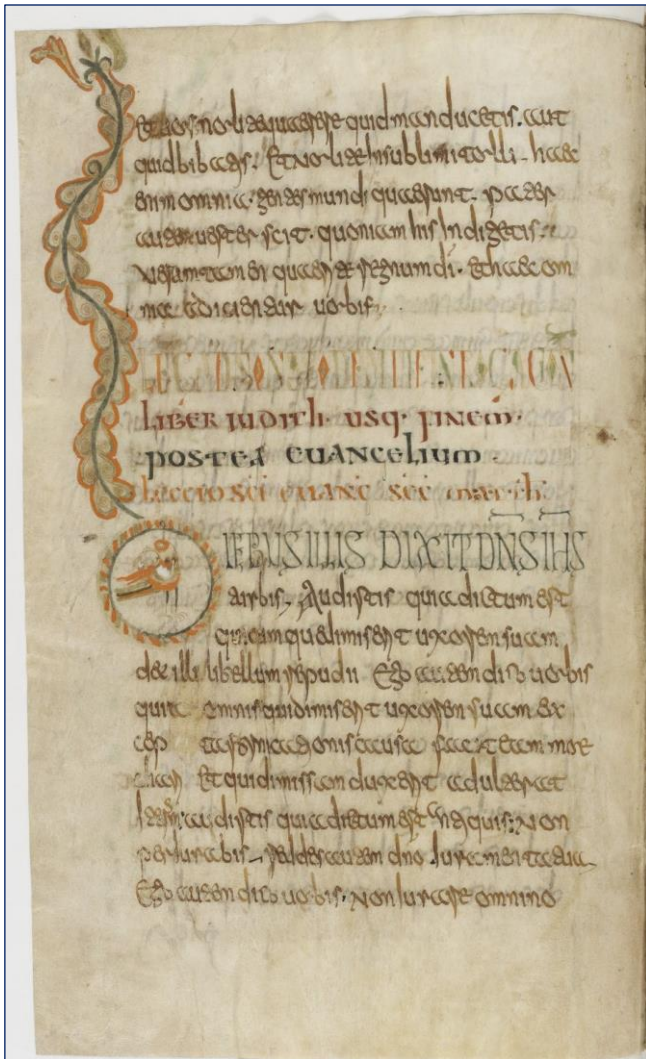 Et uos nolite quaerere quid manducetis. aut
quid bibatis. Et nolite In sublimi tolli. haec
enim omnia gentes mundi quaerunt. pater
autem uester scit. quoniam his Indigetis.
Uerumtamen quaerite regnum di. Et haec om
nia adicientur uobis.
LIBER IUDITH. USQ. FINEM.
POSTEA EUANGELIUM.
Lectio sci euang sec math
DIEBUS ILLIS DIXIT DNS IHS
turbis. Audistis quia dictum est
quicumque dimiserit uxorem suam
det illi libellum repudii Ego autem dico uobis
quia omnis qui dimiserit uxorem suam ex
cep ta fornicationis causa facit eam moe
chari Et qui dimissam duxerit adulterat
Iterum audistis quia dictum est antiquis: Non
periurabis. reddes autem dno Iuramenta tua
Ego autem dico uobis. Non Iurare omnino